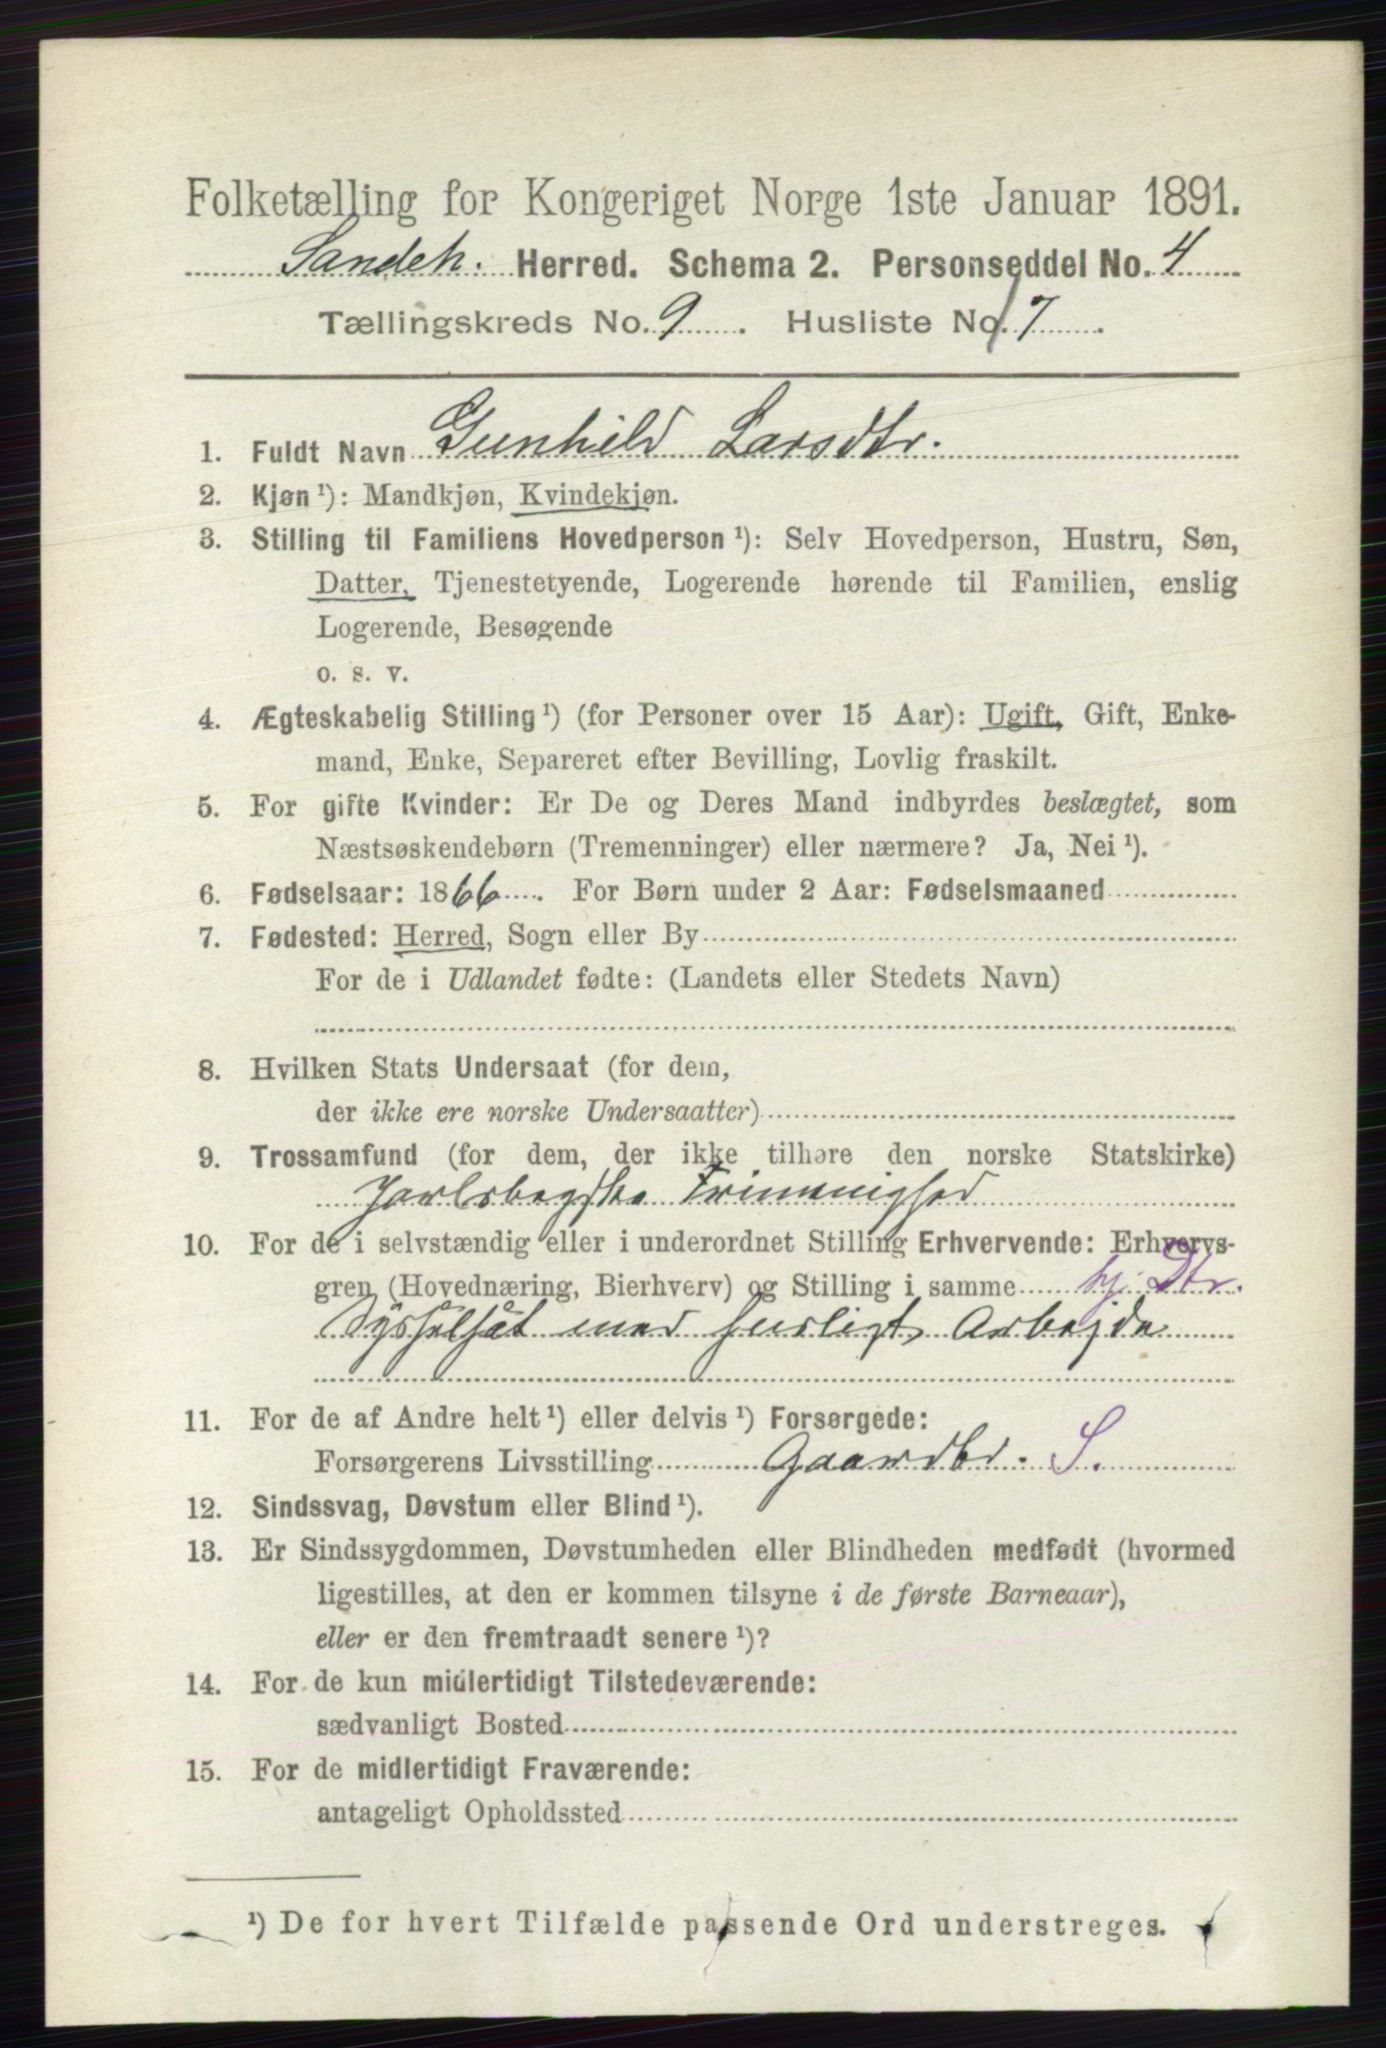 Folketælling for Kongeriget Norge 1ste Januar 1891.
Sandeh. Herred. Schema 2. Personseddel No. 4
Tællingskreds No. 9. Husliste No. 17.
1. Fuldt Navn Gunhild Larsdtr.
2. Kjøn ¹): Mandkjøn, Kvindekjøn.
3. Stilling til Familiens Hovedperson ¹): Selv Hovedperson, Hustru, Søn,
Datter, Tjenestetyende, Logerende hørende til Familien, enslig
Logerende, Besøgende
o. s. v.
4. Ægteskabelig Stilling ¹) (for Personer over 15 Aar): Ugift, Gift, Enke-
mand, Enke, Separeret efter Bevilling, Lovlig fraskilt.
5. For gifte Kvinder: Er De og Deres Mand indbyrdes beslægtet, som
Næstsøskendebørn (Tremenninger) eller nærmere? Ja, Nei ¹).
6. Fødselsaar: 1866. For Børn under 2 Aar: Fødselsmaaned
7. Fødested: Herred, Sogn eller By
For de i Udlandet fødte: (Landets eller Stedets Navn)
8. Hvilken Stats Undersaat (for dem,
der ikke ere norske Undersaatter)
9. Trossamfund (for dem, der ikke tilhøre den norske Statskirke)
Jarlsbergske Frimenighed
10. For de i selvstændig eller i underordnet Stilling Erhvervende: Erhvervs-
gren (Hovednæring, Bierhverv) og Stilling i samme hj. Dtr.
Sysselsat med husligt Arbejde
11. For de af Andre helt ¹) eller delvis ¹) Forsørgede:
Forsørgerens Livsstilling Gaardbr. S.
12. Sindssvag, Døvstum eller Blind ¹).
13. Er Sindssygdommen, Døvstumheden eller Blindheden medfødt (hvormed
ligestilles, at den er kommen tilsyne i de første Barneaar),
eller er den fremtraadt senere ¹)?
14. For de kun midlertidigt Tilstedeværende:
sædvanligt Bosted
15. For de midlertidigt Fraværende:
antageligt Opholdssted
¹) De for hvert Tilfælde passende Ord understreges.